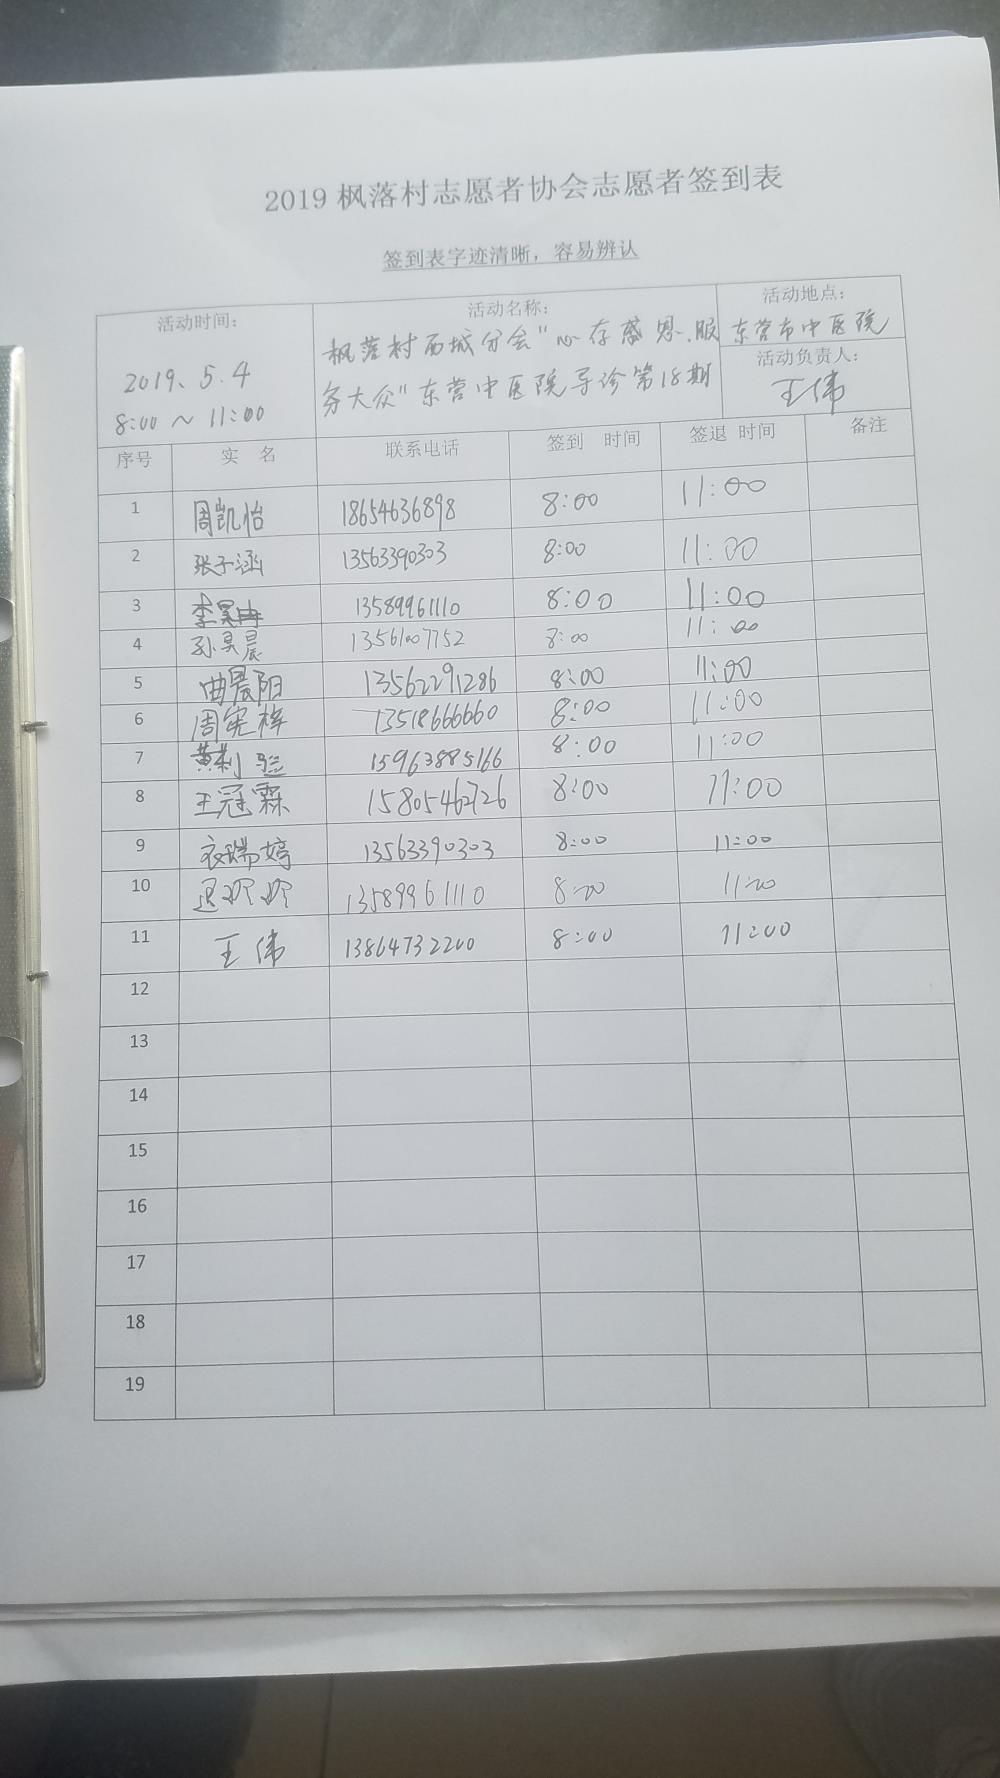 2019 枫落村志愿者协会志愿者签到表
签到表字迹清晰，容易辨认
活动时间：
2019、5.4
8:00 ~ 11:00
活动名称：
枫落村西城分会"心存感恩.服
务大众"东营中医院导诊第18期
活动地点：
东营市中医院
活动负责人：
王伟
序号 实 名 联系电话 签到 时间 签退 时间 备注
1 周凯怡 18654636898 8:00 11:00
2 张子涵 13563390303 8:00 11:00
3 李昊冉 13589961110 8:00 11:00
4 孙昊晨 13561007752 8:00 11:00
5 曲晨阳 13562291286 8:00 11:00
6 周宪梓 13518666660 8:00 11:00
7 15963885166 8:00 11:00
8 王冠霖 15805462726 8:00 11:00
9 衣瑞婷 13563390303 8:00 11:00
10 13589961110 8:00 11:00
11 王伟 13864732200 8:00 11:00
12
13
14
15
16
17
18
19